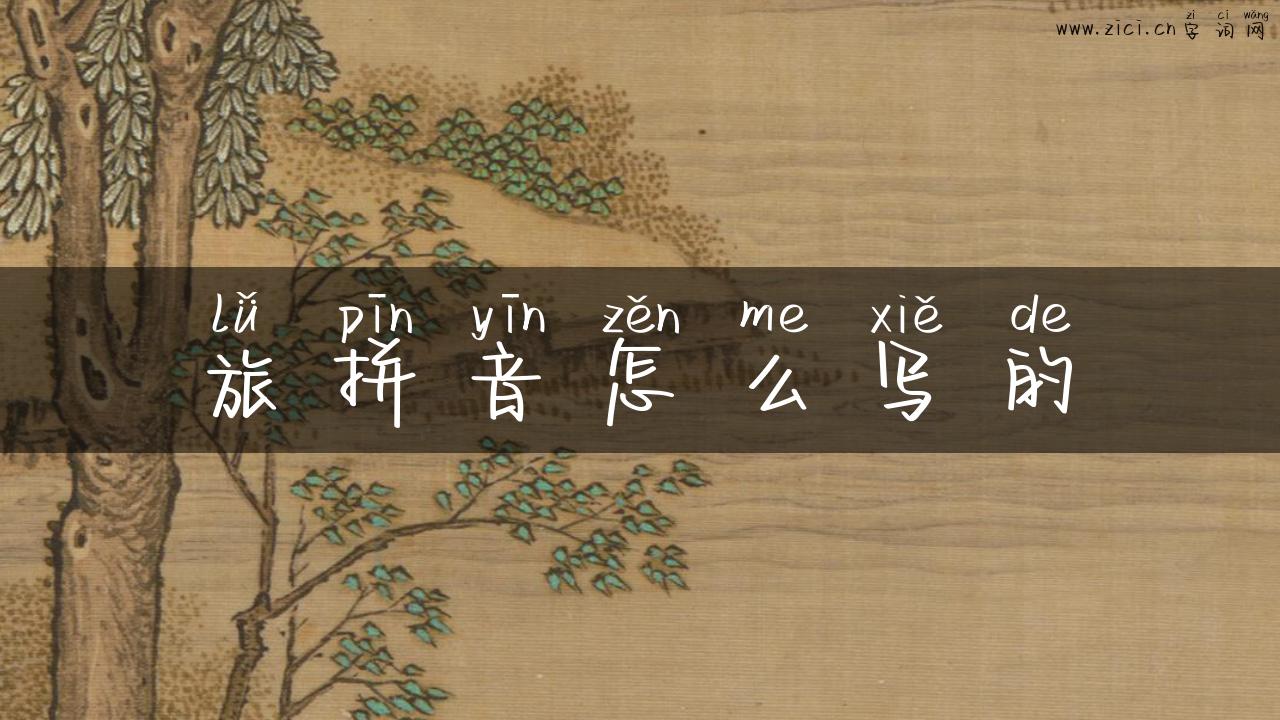 zì cí wǎng
www.zici.cn 字词网
lǚ pīn yīn zěn me xiě de
旅拼音怎么写的